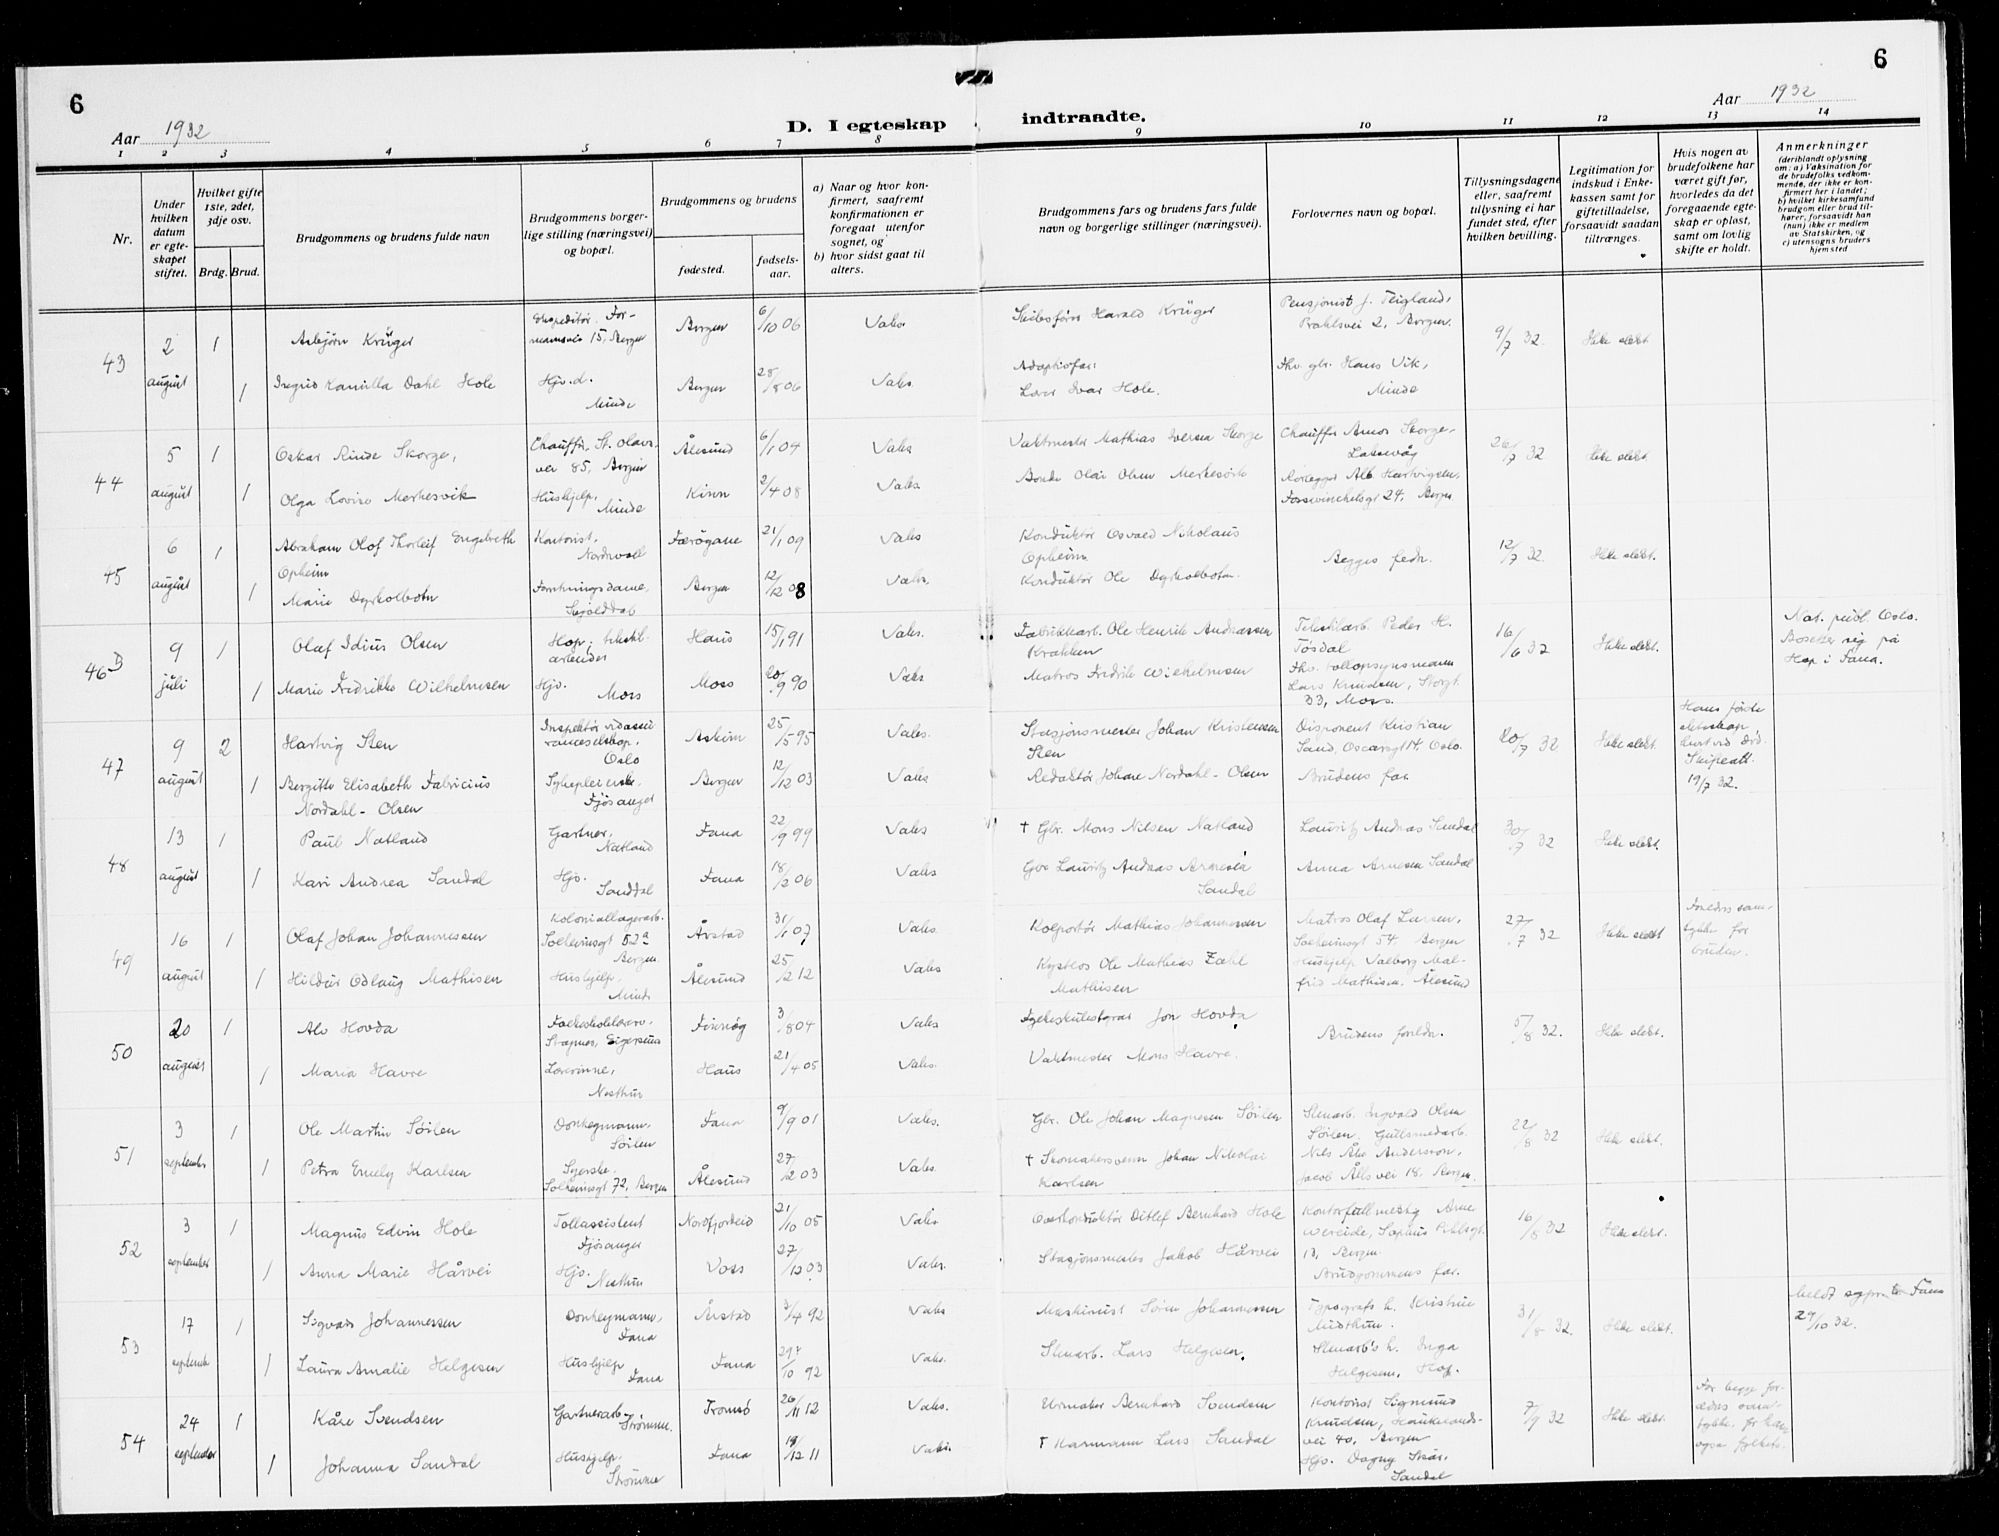 6
6
Aar 1932
D. I egteskap
indtraadte.
Aar 1932
1 2 3 4 5 6 7 8
9 10 11 12 13 14
Nr.
Under
hvilken
datum
er egte-
skapet
stiftet.
Hvilket gifte
1ste, 2det,
3dje osv.
Brdg. Brud.
Brudgommens og brudens fulde navn
Brudgommens borger-
lige stilling (næringsvei)
og bopæl.
Brudgommens og brudens
fødested.
fødsels-
aar.
a) Naar og hvor kon-
firmert, saafremt
konfirmationen er
foregaat utenfor
sognet, og
b) hvor sidst gaat til
alters.
Brudgommens fars og brudens fars fulde
navn og borgerlige stillinger (næringsvei).
Forlovernes navn og bopæl.
Tillysningsdagene
eller, saafremt
tillysning ei har
fundet sted, efter
hvilken bevilling.
Legitimation for
indskud i Enke-
kassen samt for
giftetilladelse,
forsaavidt saadan
tiltrænges.
Hvis nogen av
brudefolkene har
været gift før,
hvorledes da det
foregaaende egte-
skap er opløst,
samt om lovlig
skifte er holdt.
Anmerkninger
(deriblandt oplysning
om: a) Vaksination for
de brudefolks vedkom-
mende, der ikke er kon-
firmert her i landet;
b) hvilket kirkesamfund
brudgom eller brud til-
hører, forsaavidt han
(hun) ikke er medlem
av Statskirken, og
c) utensogns bruders
hjemsted
43
2
august
1
Asbjørn Krüger
Bergen
6/10 06
Vaks.
Skibsfører Harald Krüger
Pensjonist J. Teigland,
2, Bergen.
9/7 32.
Ikke slekt
1
Ingrid Kamilla Dahl Hole
Hjv. d.
Minde
Bergen
28/8 06
Vaks.
Adoptivfar:
Lærer Ivar Hole.
Fhv. gbr. Hans Vik,
Minde
44
5
august
1
Oskar Rinde Skorge,
Chauffør, St. Olavs
vei 85, Bergen
Ålesund
6/1 04
Vaks
Vaktmester Mathias Iversen Skorge
Chauffør Amos Skorge,
Laksevåg
26/7 32
Ikke slekt.
1
Olga Lovise Merkesvik
Hushjelp,
Minde
Kinn
2/4 08
Vaks.
Bonde Olai Olsen Merkesvik
Rørlegger Alb. Hartvigsen,
24, Bergen
45
6
august
1
Abraham Olof Thorleif Engelbreth
Opheim
Kontorist,
21/1 09
Vaks
Konduktør Osvald Nikolaus
Opheim
Begges fedre.
12/7 32.
Ikke slekt.
1
Marie Dyrkolbotn
Forretningsdame,
Skjolddal
Bergen
12/12 08
Vaks.
Konduktør Ole Dyrkolbotn.
46 B
9
juli
1
Olaf Idius Olsen
Hop, tekstil-
arbeider
Haus
15/1 91
Vaks.
Fabrikkarb. Ole Henrik Andreassen
Krakken
Tekstilarb. Peder H.
Tøsdal
16/6 32
Ikke slekt.
Nat. publ. Oslo.
Bosetter sig på
Hop i Fana.
1
Marie Fredrikke Wilhelmsen
Hjv.
Moss
Moss
20/9 90
Vaks
Matros Fredrik Wilhelmsen
Fhv. tollopsynsmann
Lars Knudsen, Storgt.
33, Moss.
47
9
august
2
Hartvig Sten
Inspektør vid assu-
ranceselskap.
Oslo
Askim
25/5 95
Vaks.
Stasjonsmester Johan Kristensen
Sten
Disponent Kristian
Sand, Oscarsgt 14, Oslo.
20/7 32
Ikke slekt.
Hans første
ekteskap
løst ved død.
Skifteatt.
19/7 32.
1
Bergitte Elisabeth Fabricius
Nordahl-Olsen
Sykepleierske,
Fjøsanger
Bergen
12/12 03
Vaks
Redaktør Johan Nordahl-Olsen
Brudens far.
48
13
august
1
Paul Natland
Gartner,
Natland
Fana
22/9 99
Vaks
† Gbr. Mons Nilsen Natland
Lauritz Andreas Sandal
30/7 32
Ikke slekt.
1
Kari Andrea Sandal
Hjv.
Sanddal
Fana
18/2 06
Vaks
Gbr Lauritz Andreas Arnesen
Sandal
Anna Arnesen Sandal
49
16
august
1
Olaf Johan Johannessen
Koloniallagerarb.
Solheimsgt 52a
Bergen.
Årstad
31/1 07
Vaks.
Kolportør Mathias Johannessen
Matros Olaf Larsen,
Solheimsgt 54, Bergen
27/7 32
Ikke slekt
Foreldres sam-
tykke for
bruden.
1
Hildur Odlaug Mathisen
Hushjelp,
Minde
Ålesund
25/2 12
Vaks
Ole Mathias Zahl
Mathisen
Hushjelp Valborg Mal-
frid Mathisen, Ålesund
50
20
august
1
Alv Hovda
Folkeskolelærer,
Eigersund
Finnøy
3/8 04
Vaks
Jon Hovda
Brudens foreldre.
5/8 32.
Ikke slekt.
1
Maria Havre
Lærerinne,
Nesttun
Haus
21/4 05
Vaks.
Vaktmester Mons Havre.
51
3
september
1
Ole Martin Søilen
Donkeymann,
Søilen
Fana
9/9 01
Vaks.
Gbr. Ole Johan Magnesen Søilen
Stenarb. Ingvald Olsen
Søilen. Gullsmedarb.
22/8 32
Ikke slekt.
1
Petra Emely Karlsen
Syerske.
Solheimsgt 72, Bergen
Ålesund
27/12 03
Vaks.
† Skomakersvenn Johan Nikolai
Karlsen
Nils Åke Andersson,
Jacob Ålls vei 18, Bergen.
52
3
september
1
Magnus Edvin Hole
Tollassistent
Fjøsanger
Nordfjordeid
21/10 05
Vaks
Overkonduktør Ditlef Bernhard Hole
Kontorfullmektig Arne
Wereide, Sophus Pihlsgt.
13, Bergen.
16/8 32
Ikke slekt.
1
Anna Marie Hårvei
Hjv.
Nesttun
Voss
27/12 03
Vaks.
Stasjonsmester Jakob Hårvei
Brudgommens far.
53
17
september
1
Sigvald Johannessen
Donkeymann,
Fana
Årstad
3/4 92
Vaks
Maskinist Søren Johannessen
Typografs h. Kristine
Midthun.
31/8 32.
Ikke slekt.
29/10 32.
1
Laura Amalie Helgesen
Hushjelp
Fana
Fana
29/10 92
Vaks.
Stenarb. Lars Helgesen.
Stenarb's h. Inga
Helgesen, Hop.
54
24
september
1
Kåre Svendsen
Gartnerarb
Strømme.
Tromsø
26/11 12
Vaks.
Urmaker Bernhard Svendsen
Kontorist Sigmund
Knudsen, Haukelands-
vei 40, Bergen
7/9 32
Ikke slekt.
For begge for-
eldres sam-
tykke. for ham
også fylkets.
1
Johanna Sandal
Hushjelp.
Strømme
Fana
19/12 11
Vaks.
† Karmann Lars Sandal
Hjv. Dagny Skår,
Sandal